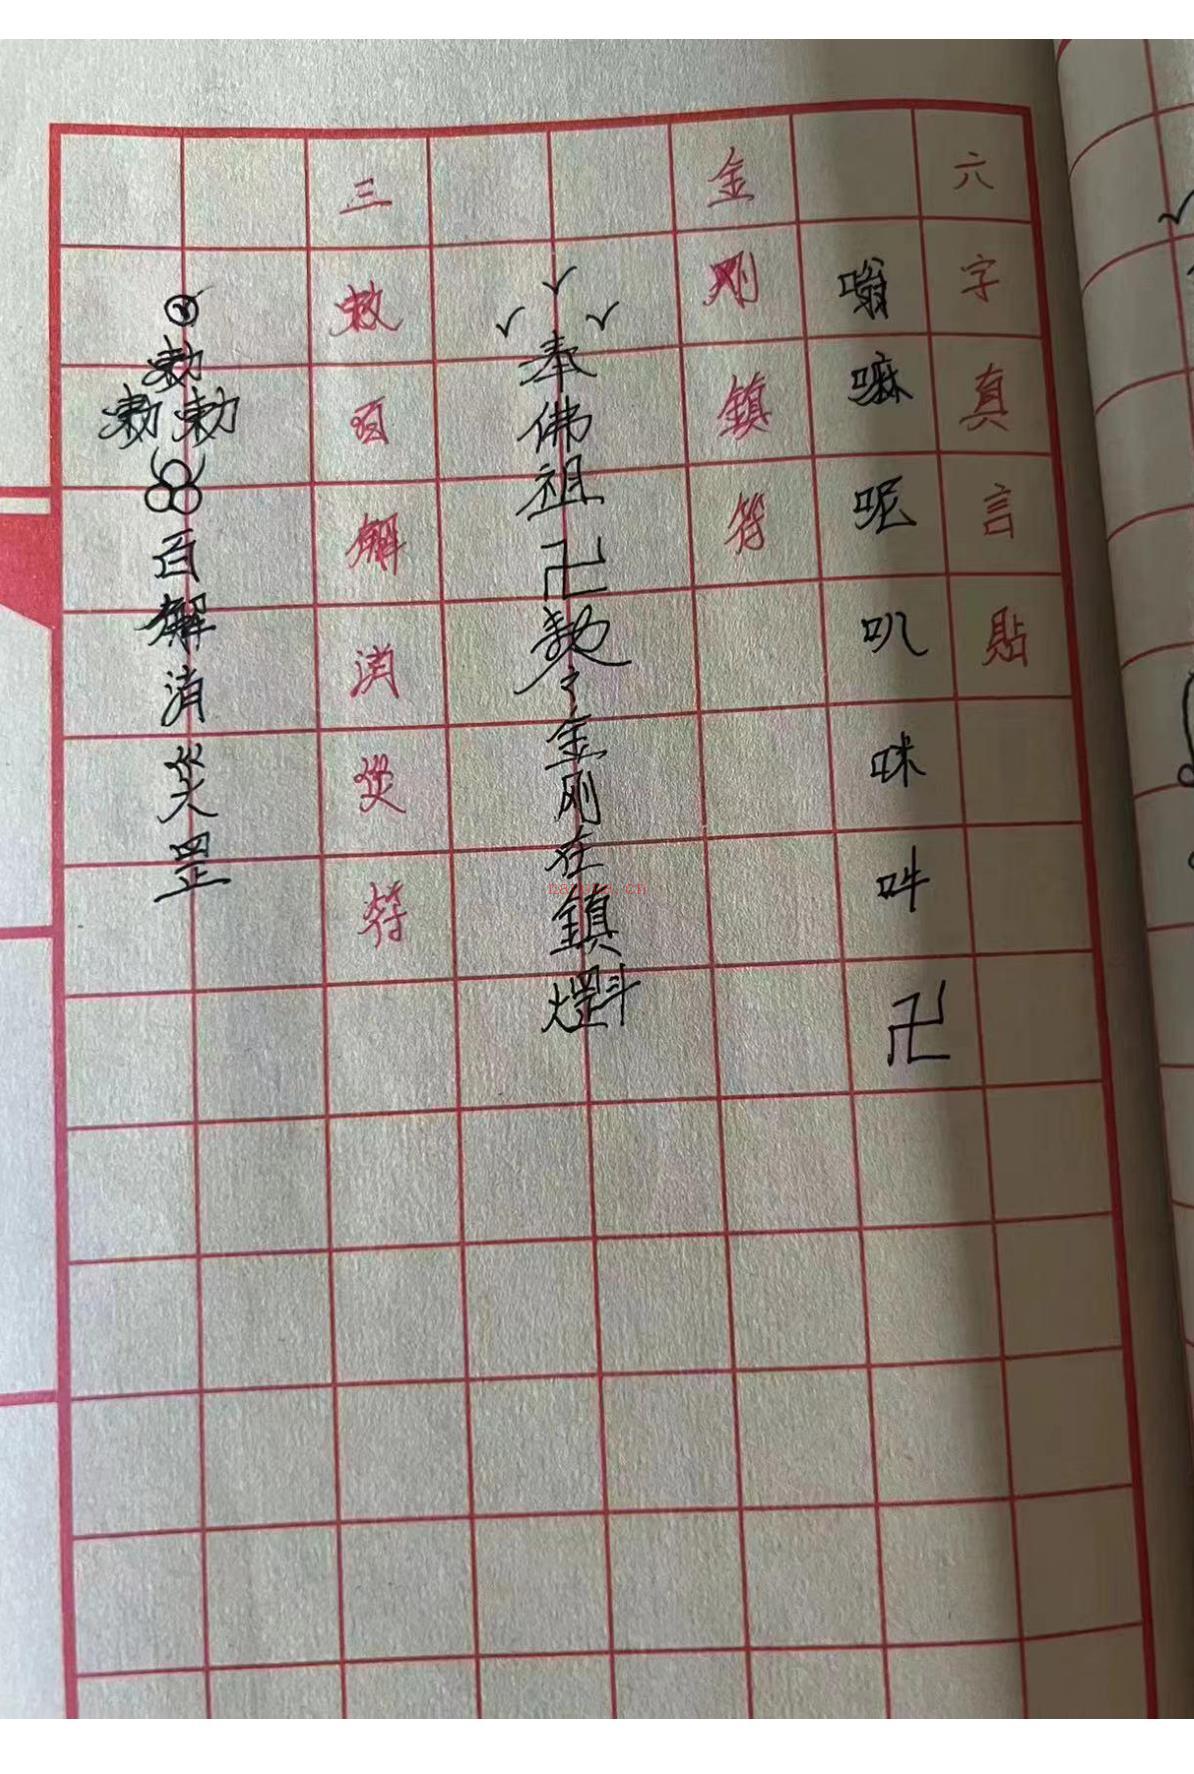 六字真言貼
嗡嘛呢叭咪吽卍
金刚鎮符
奉佛祖卍敕令金刚在鎮煞罡
三敕百解消災符
敕
敕敕
百解消災罡